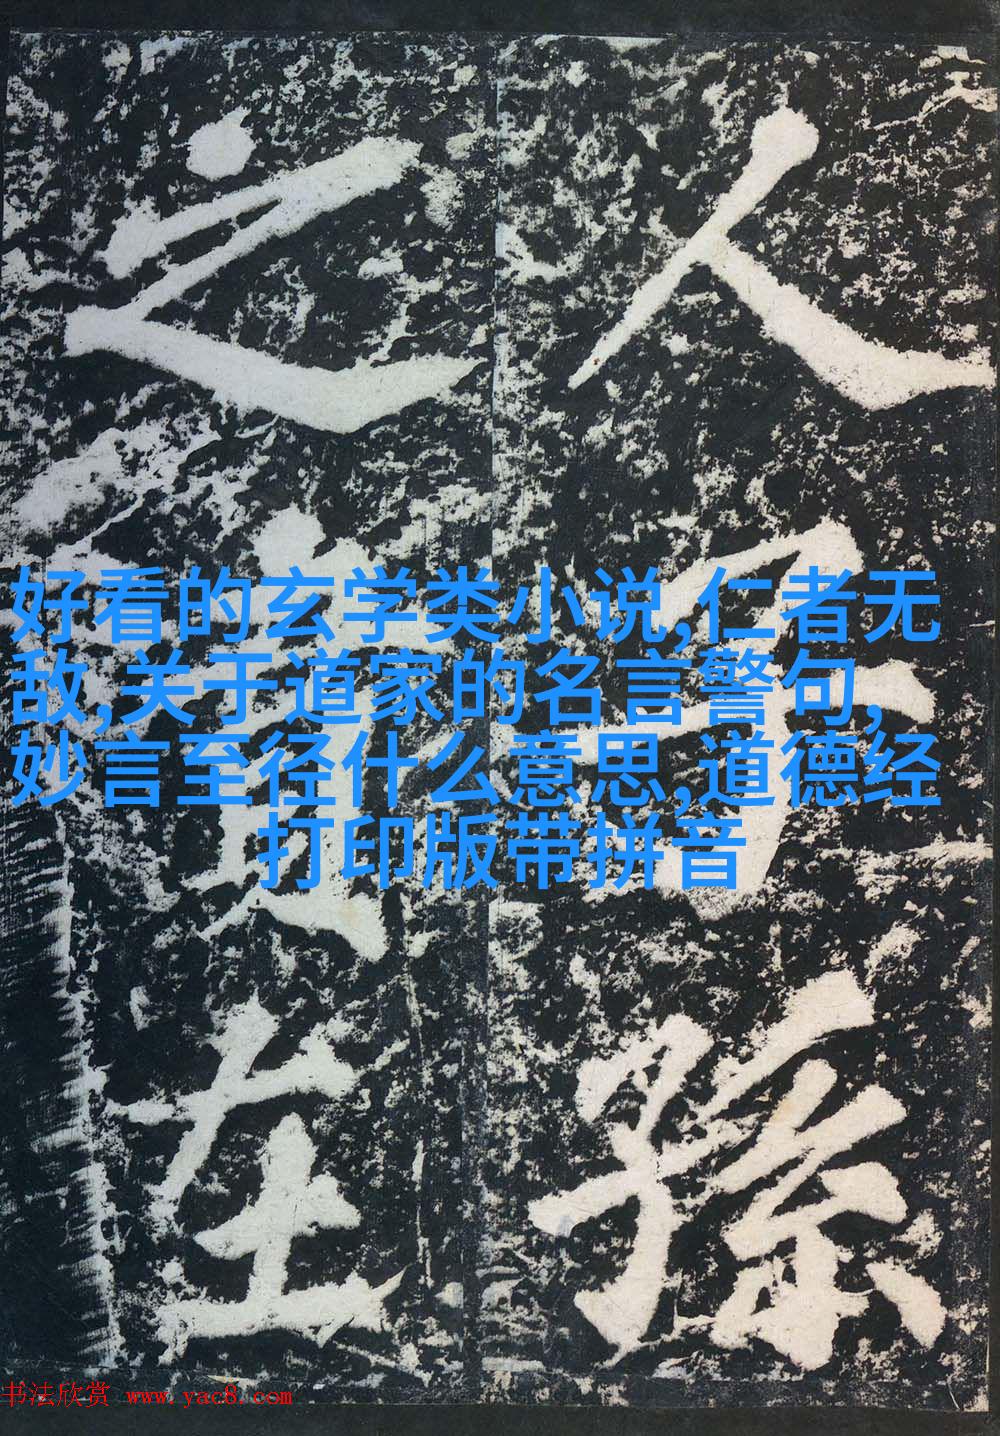 人子孫
之在
好看的玄学类小说,仁者无
敌,关于道家的名言警句,
妙言至径什么意思,道德经
打印版带拼音
书法欣赏 www.yac8.com